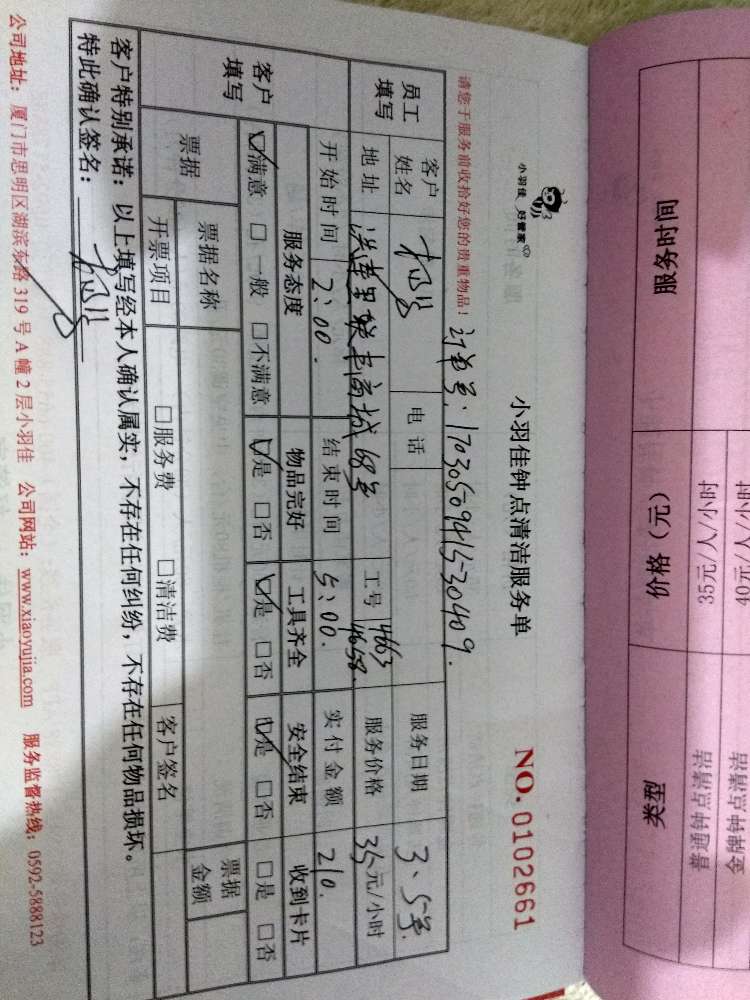 小羽佳 好管家
小羽佳钟点清洁服务单
NO.0102661
请您于服务前收拾好您的贵重物品!
订单号:1703050941530409.
员工填写
客户姓名
电话
服务日期 3、5号.
地址 莲花里联丰商城68号
工号 4663 4658.
服务价格 35元/小时
开始时间 2:00.
结束时间 5:00.
实付金额 210.
客户填写
服务态度 物品完好 工具齐全 安全结束 收到卡片
☑满意 □一般 □不满意 ☑是 □否 ☑是 □否 ☑是 □否 □是 □否
票据
票据名称
票据金额
开票项目 □服务费 □清洁费 客户签名
客户特别承诺:以上填写经本人确认属实,不存在任何纠纷,不存在任何物品损坏。
特此确认签名:
公司地址:厦门市思明区湖滨东路319号A幢2层小羽佳 公司网站:www.xiaoyujia.com 服务监督热线:0592-5888123
类型 价格(元) 服务时间
普通钟点清洁 35元/人/小时
金牌钟点清洁 40元/人/小时